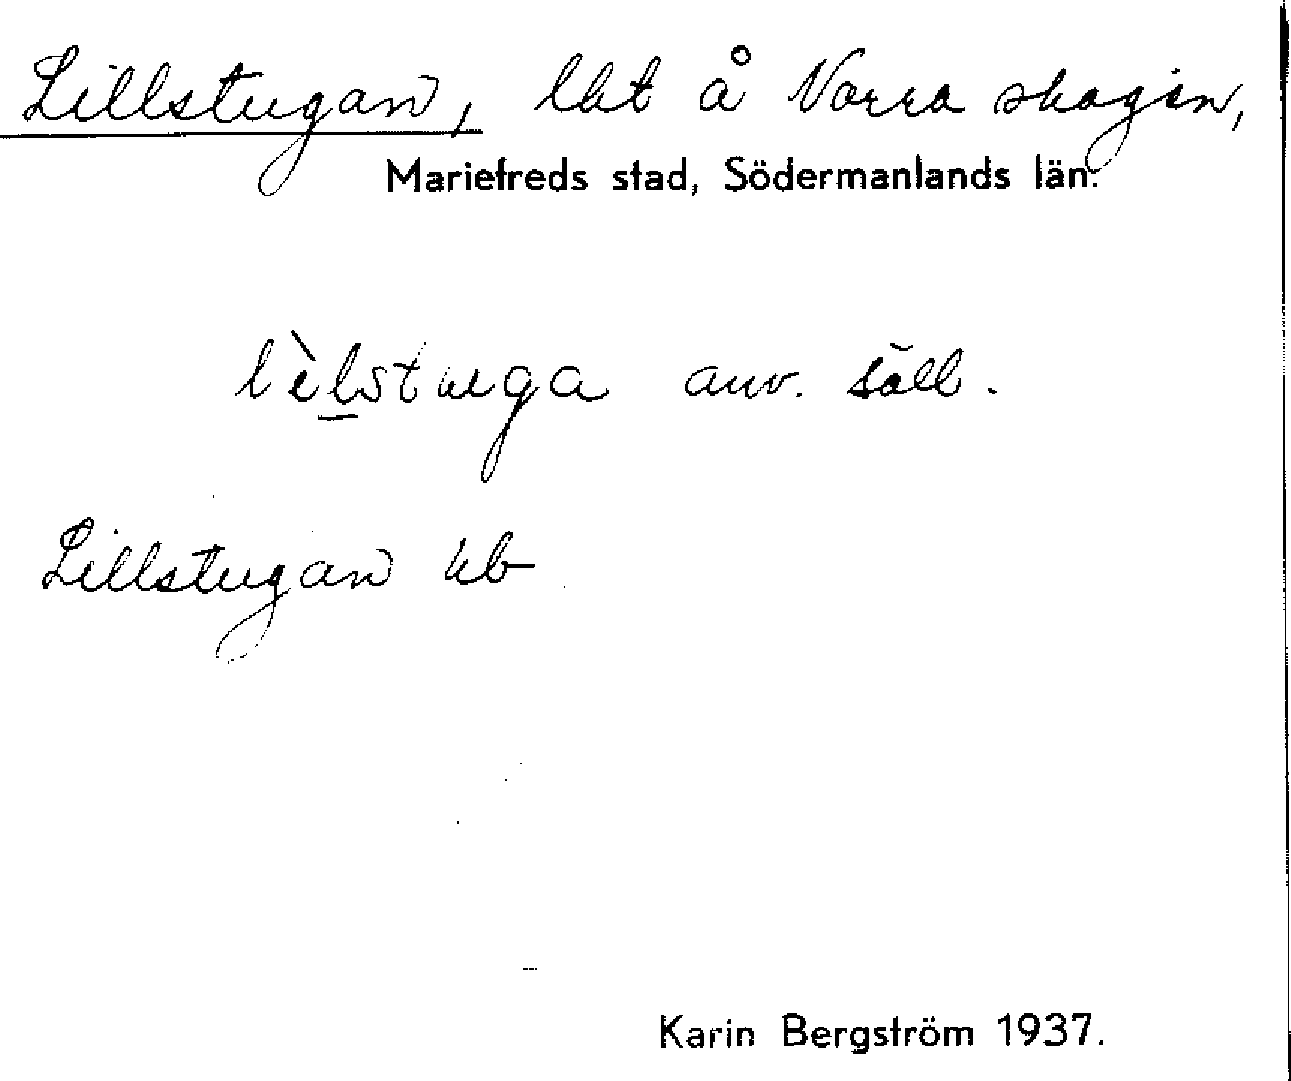 Lillstugan, lht å Norra skogen,
Mariefreds stad, Södermanlands län.
lèlstuga anv. säll.
Lillstugan kb
Karin Bergström 1937.